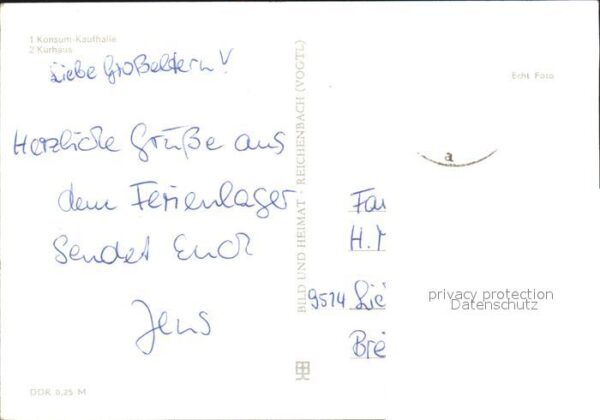 1 Konsum-Kaufhalle
2 Kurhaus
Liebe Großeltern!
Herzliche Grüße aus
dem Ferienlager
sendet Euch
Jens
DDR 0,25 M
BILD UND HEIMAT · REICHENBACH (VOGTL)
Echt Foto
a
Fa
H.
9514
Bre
privacy protection
Datenschutz